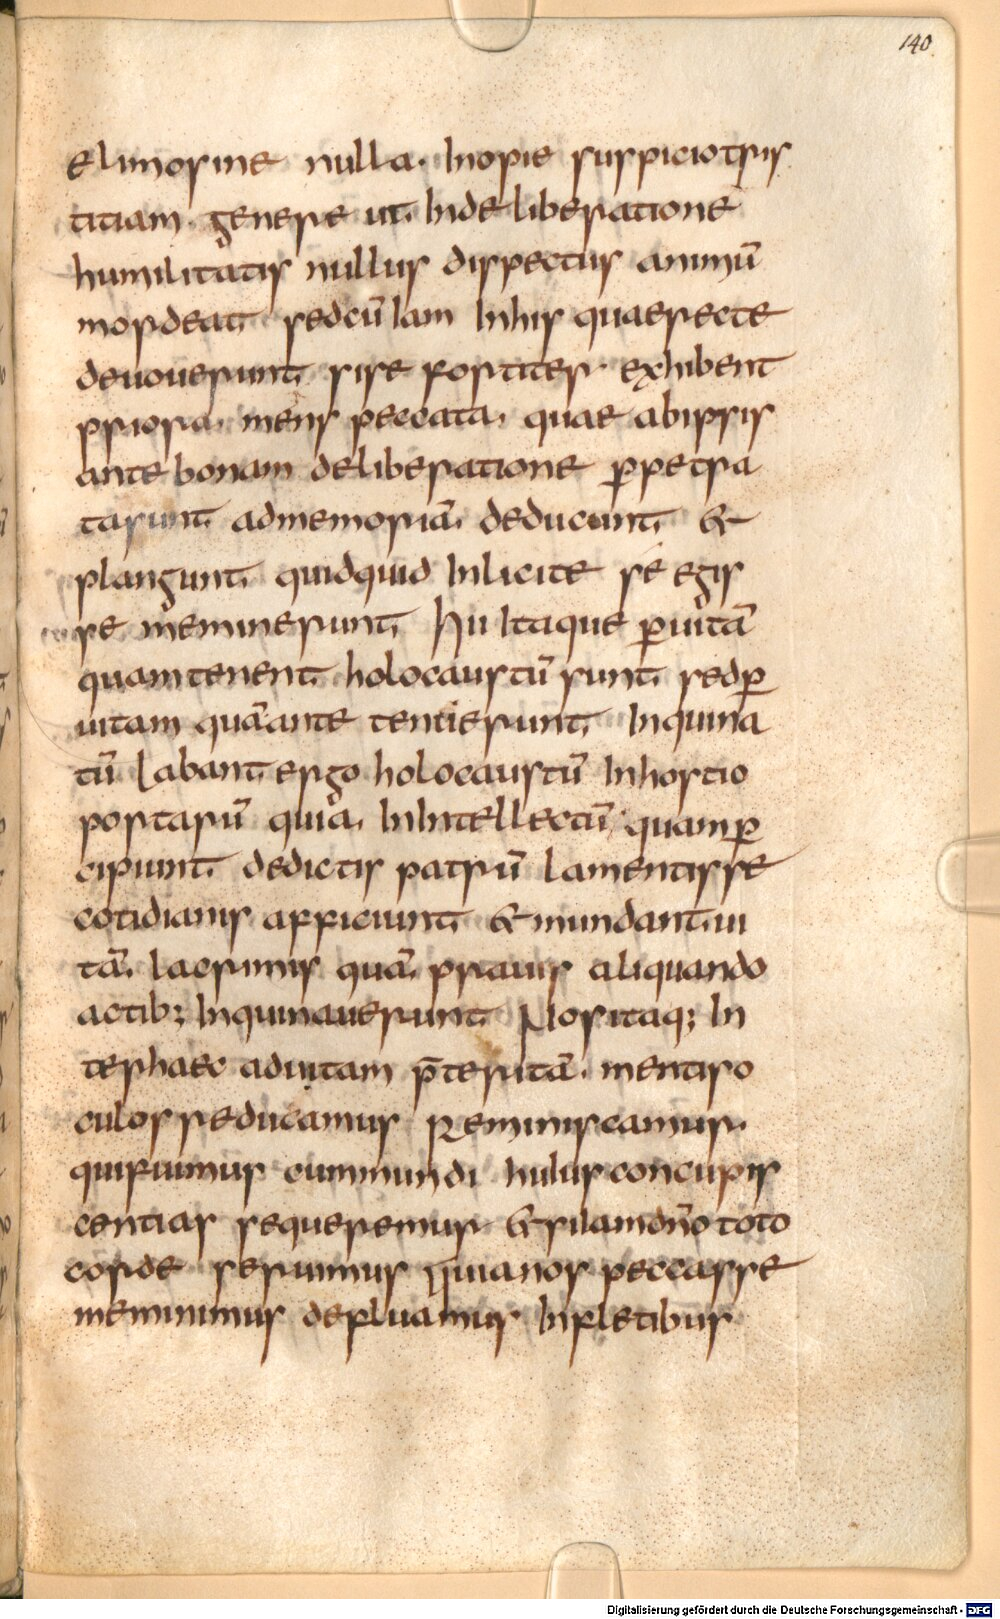 140
elimosine nulla. Inopie suspicio tris
titiam. generet ut Inde liberatione
humilitatis nullus dispectus animū
mordeat sedcū Iam Inhis quaerecte
devoverunt. sise fortiter exhibent
priora mens peccata. quae abipsis
ante bonam deliberatione ꝑpetra
ta sunt admemoriā. deducunt &
plangunt quidquid Inlicite se egis
se meminerunt. Hii Itaque ꝑvitā
quam tenent holocaustū sunt sedꝑ
vitam quā ante tenuerunt Inquina
tū labant ergo holocaustū Inhostio
portarū quia. InIntellectū quamꝑ
cipiunt dedictis patrū lamentis se
cotidianis afficiunt & mundant. vi
tā. lacrimis quā. pravis aliquando
actib; Inquinaverunt Nos itaq; In
ter haec advitam p̄teritā. mentis o
culos reducamus Reminiscamur.
qui fuimus cum mundi huius concupis
centias sequeremur &si Iam dn̄o toto
corde servimus q̄via nos peccasse
meminimus defluamus Infletibus
Digitalisierung gefördert durch die Deutsche Forschungsgemeinschaft - DFG